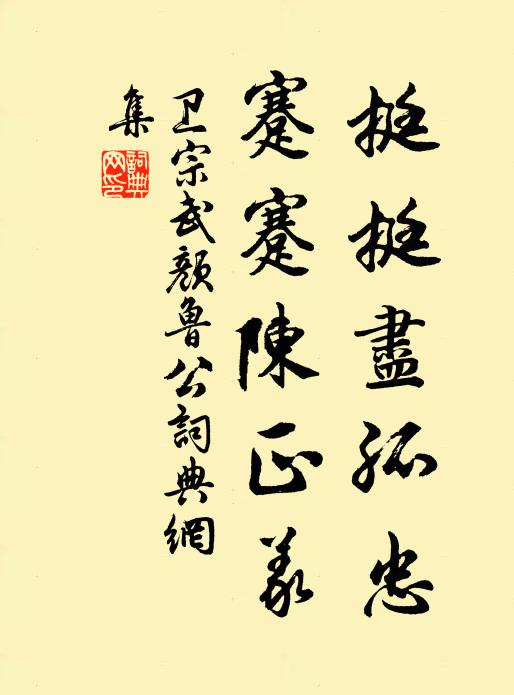 挺挺盡孤忠
蹇蹇陳正義
卫宗武顏魯公詞典網
集
詞典
网印